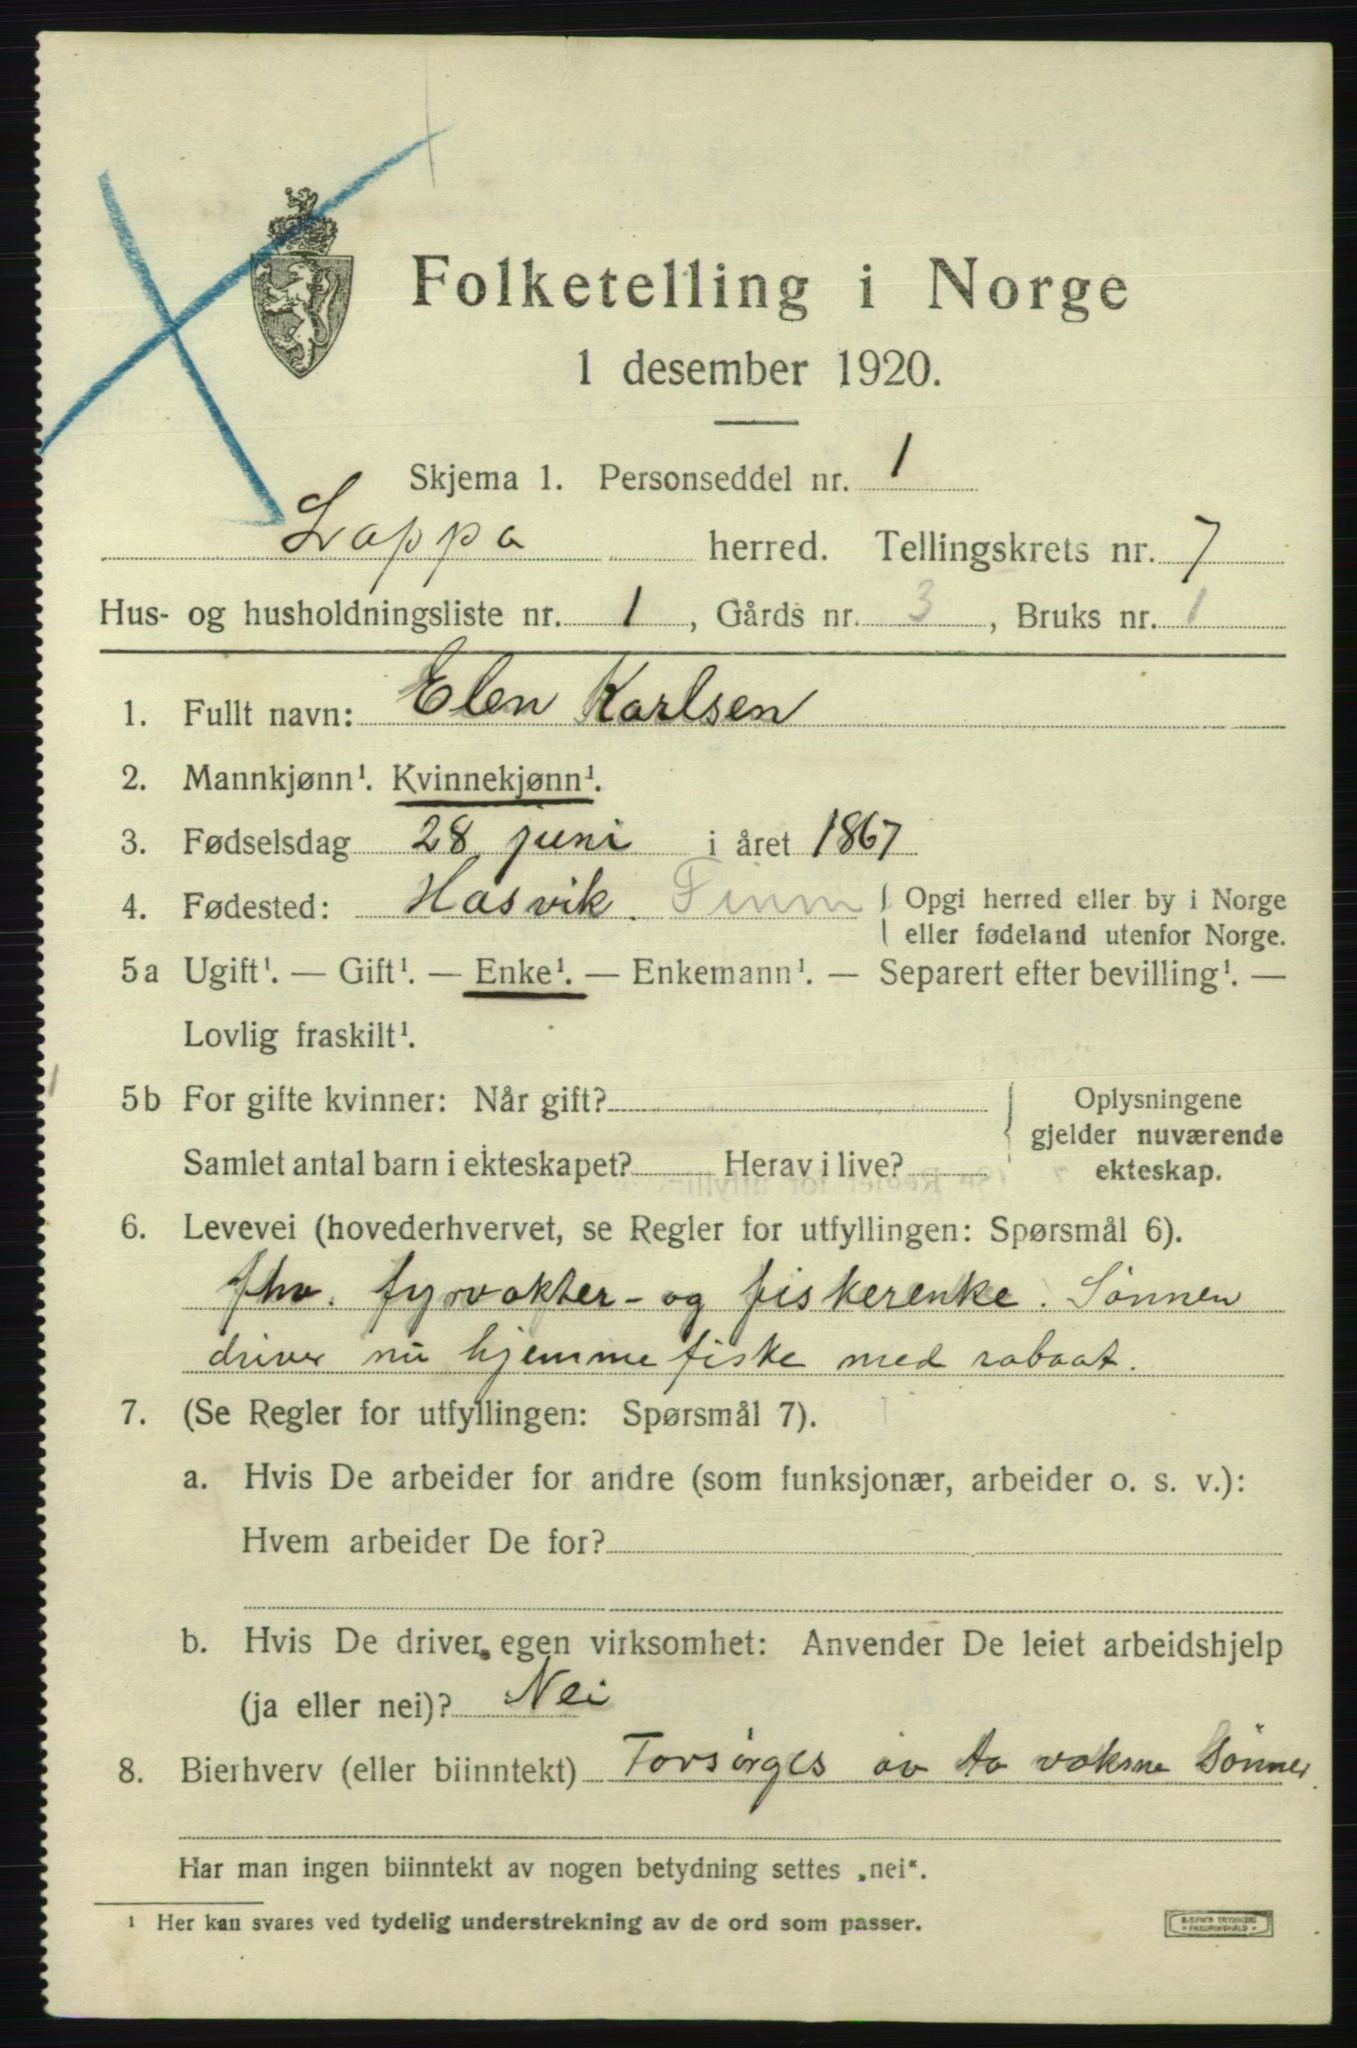 Folketelling i Norge
1 desember 1920.
Skjema 1. Personseddel nr. 1
Loppa herred. Tellingskrets nr. 7
Hus- og husholdningsliste nr. 1, Gårds nr. 3, Bruks nr. 1
1. Fullt navn: Elen Karlsen
2. Mannkjønn¹. Kvinnekjønn¹.
3. Fødselsdag 28 juni i året 1867
4. Fødested: Hasvik. Finm { Opgi herred eller by i Norge
eller fødeland utenfor Norge.
5a Ugift¹. — Gift¹. — Enke¹. — Enkemann¹. — Separert efter bevilling¹. —
Lovlig fraskilt¹.
5b For gifte kvinner: Når gift? { Oplysningene
gjelder nuværende
Samlet antal barn i ekteskapet? Herav i live? ekteskap.
6. Levevei (hovederhvervet, se Regler for utfyllingen: Spørsmål 6).
fhv. fyrvokter- og fiskerenke. Sønnen
driver nu hjemmefiske med robaat.
7. (Se Regler for utfyllingen: Spørsmål 7).
a. Hvis De arbeider for andre (som funksjonær, arbeider o. s. v.):
Hvem arbeider De for?
b. Hvis De driver egen virksomhet: Anvender De leiet arbeidshjelp
(ja eller nei)? Nei
8. Bierhverv (eller biinntekt) Forsørges av to voksne Sønner.
Har man ingen biinntekt av nogen betydning settes „nei“.
¹ Her kan svares ved tydelig understrekning av de ord som passer.